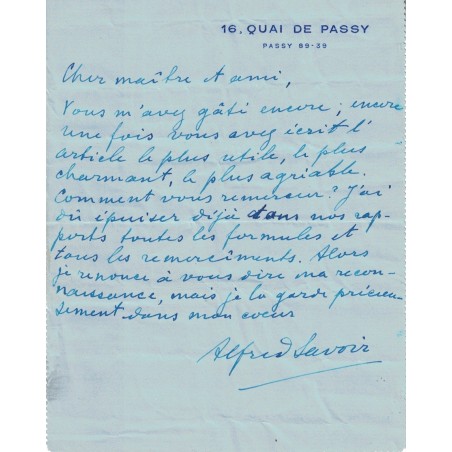 16, QUAI DE PASSY
PASSY 89-39
Cher maître et ami,
Vous m'avez gâti encore; encore
une fois vous avez écrit l'
article le plus utile, le plus
charmant, le plus agriable.
Comment vous remercier? J'ai
dû épuiser déjà dans nos rap-
ports toutes les formules et
tous les remerciments. Alors
je renonce à vous dire ma recon-
naissance, mais je la garde précieu-
sement dans mon coeur
Alfred Savoir